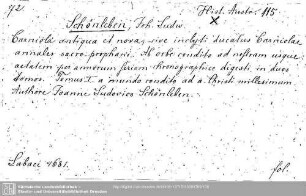 92.
Hist. Austr. 115
X
Schönleben, Joh. Ludw.
Carniola antiqua et nova, sive inclyti ducatus Carniolae
annales sacro prophani. Ab orbe condito ad nostram usque
aetatem per annorum seriem chronographice digesti, in duos
tomos. Tomus I. a mundo condito ad a. Christi millesimum.
Authore Joanne Ludovico Schönleben.
Labaci 1681.
fol.